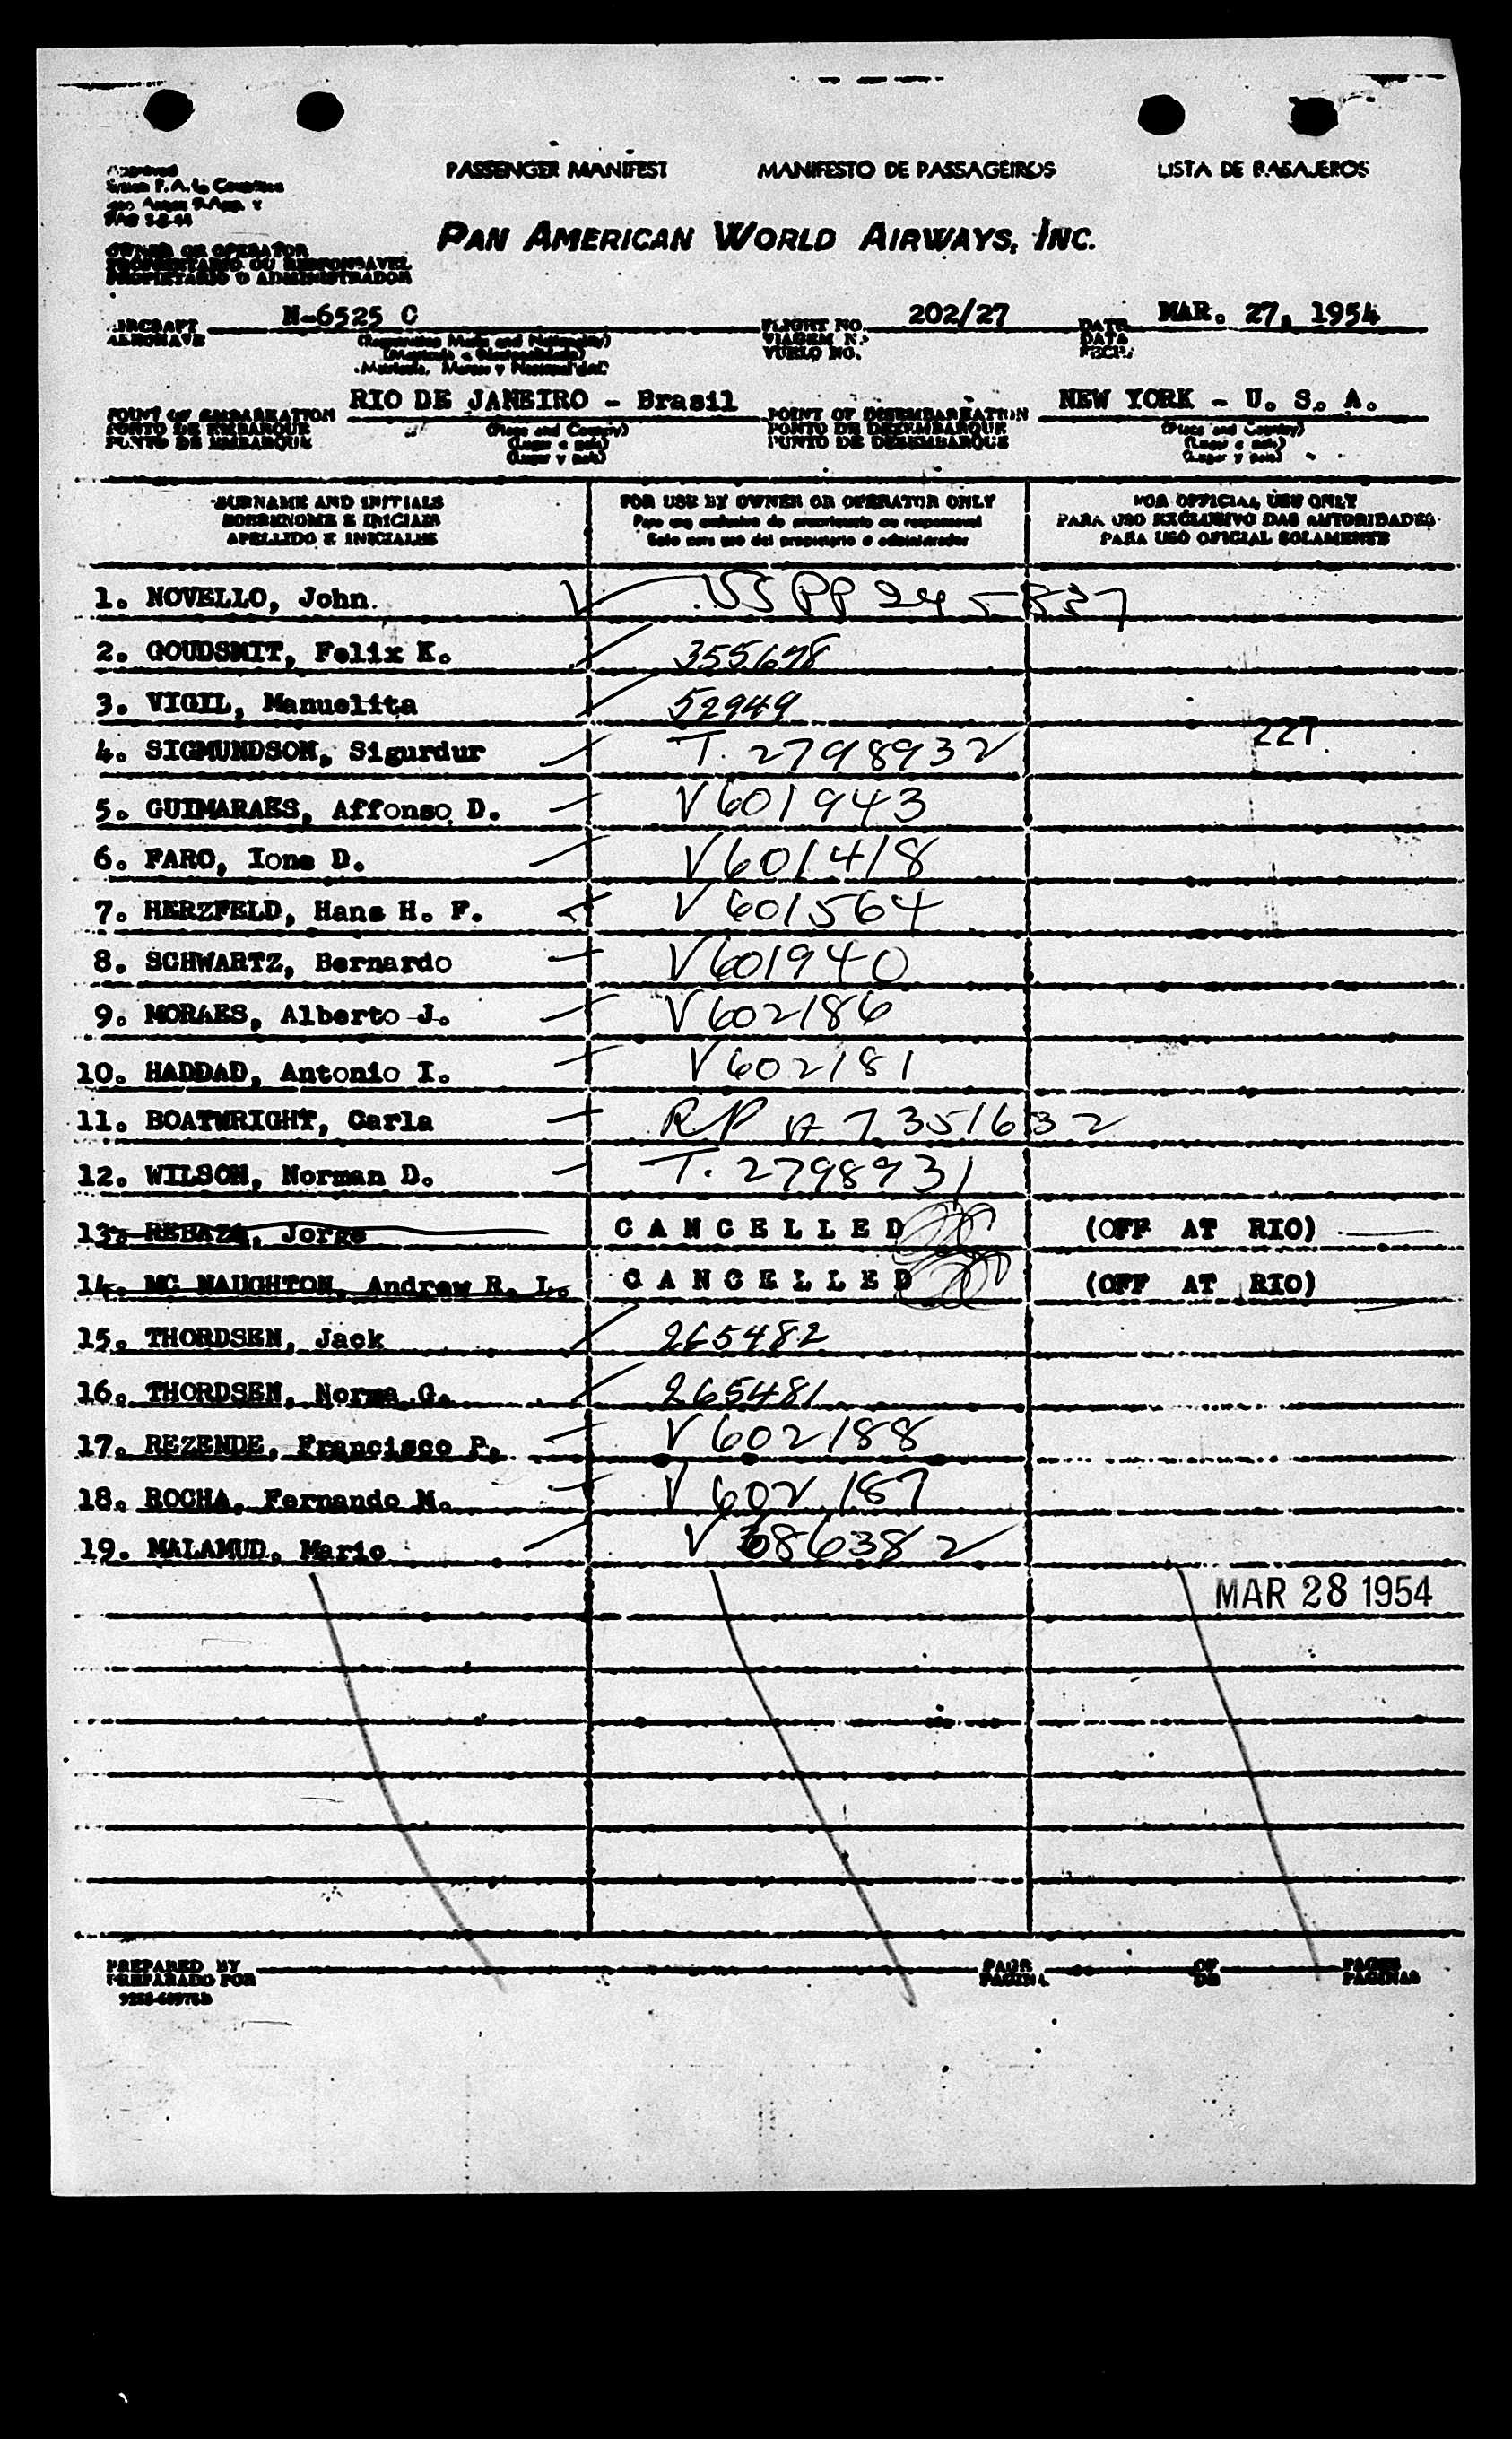 PASSENGER MANIFEST MANIFESTO DE PASSAGEIROS LISTA DE PASAJEROS
PAN AMERICAN WORLD AIRWAYS, INC.
OWNER OR OPERATOR
PROPRIETARIO OU RESPONSAVEL
PROPIETARIO O ADMINISTRADOR
AIRCRAFT N-6525 C FLIGHT NO. 202/27 DATE MAR. 27, 1954
AERONAVE VIAGEM N.º DATA
VUELO NO. FECHA
POINT OF EMBARKATION RIO DE JANEIRO - Brasil POINT OF DISEMBARKATION NEW YORK - U. S. A.
PONTO DE EMBARQUE (Place and Country) PONTO DE DEZEMBARQUE (Place and Country)
PUNTO DE EMBARQUE (Lugar e país) PUNTO DE DESEMBARQUE (Lugar e país)
(Lugar y país) (Lugar y país)
SURNAME AND INITIALS FOR USE BY OWNER OR OPERATOR ONLY FOR OFFICIAL USE ONLY
SOBRENOME E INICIAIS Para uso exclusivo do proprietario ou responsavel PARA USO EXCLUSIVO DAS AUTORIDADES
APELLIDO E INICIALES Solo para uso del propietario o administrador PARA USO OFICIAL SOLAMENTE
1. NOVELLO, John USPP 245837
2. GOUDSMIT, Felix K. 355678
3. VIGIL, Manuelita 52949
227
4. SIGMUNDSON, Sigurdur T. 2798932
5. GUIMARAES, Affonso D. V601943
6. FARO, Ione D. V601418
7. HERZFELD, Hans H. F. V601564
8. SCHWARTZ, Bernardo V601940
9. MORAES, Alberto J. V602186
10. HADDAD, Antonio I. V602181
11. BOATWRIGHT, Carla RP A 7351632
12. WILSON, Norman D. T. 2798931
13. REBAZA, Jorge CANCELLED (OFF AT RIO)
14. MC NAUGHTON, Andrew R. L. CANCELLED (OFF AT RIO)
15. THORDSEN, Jack 265482
16. THORDSEN, Norma G. 265481
17. REZENDE, Francisco P. V602188
18. ROCHA, Fernando M. V602187
19. MALAMUD, Mario V 386382
MAR 28 1954
PREPARED BY PAGE OF PAGES
PREPARADO POR PAGINA DE PAGINAS